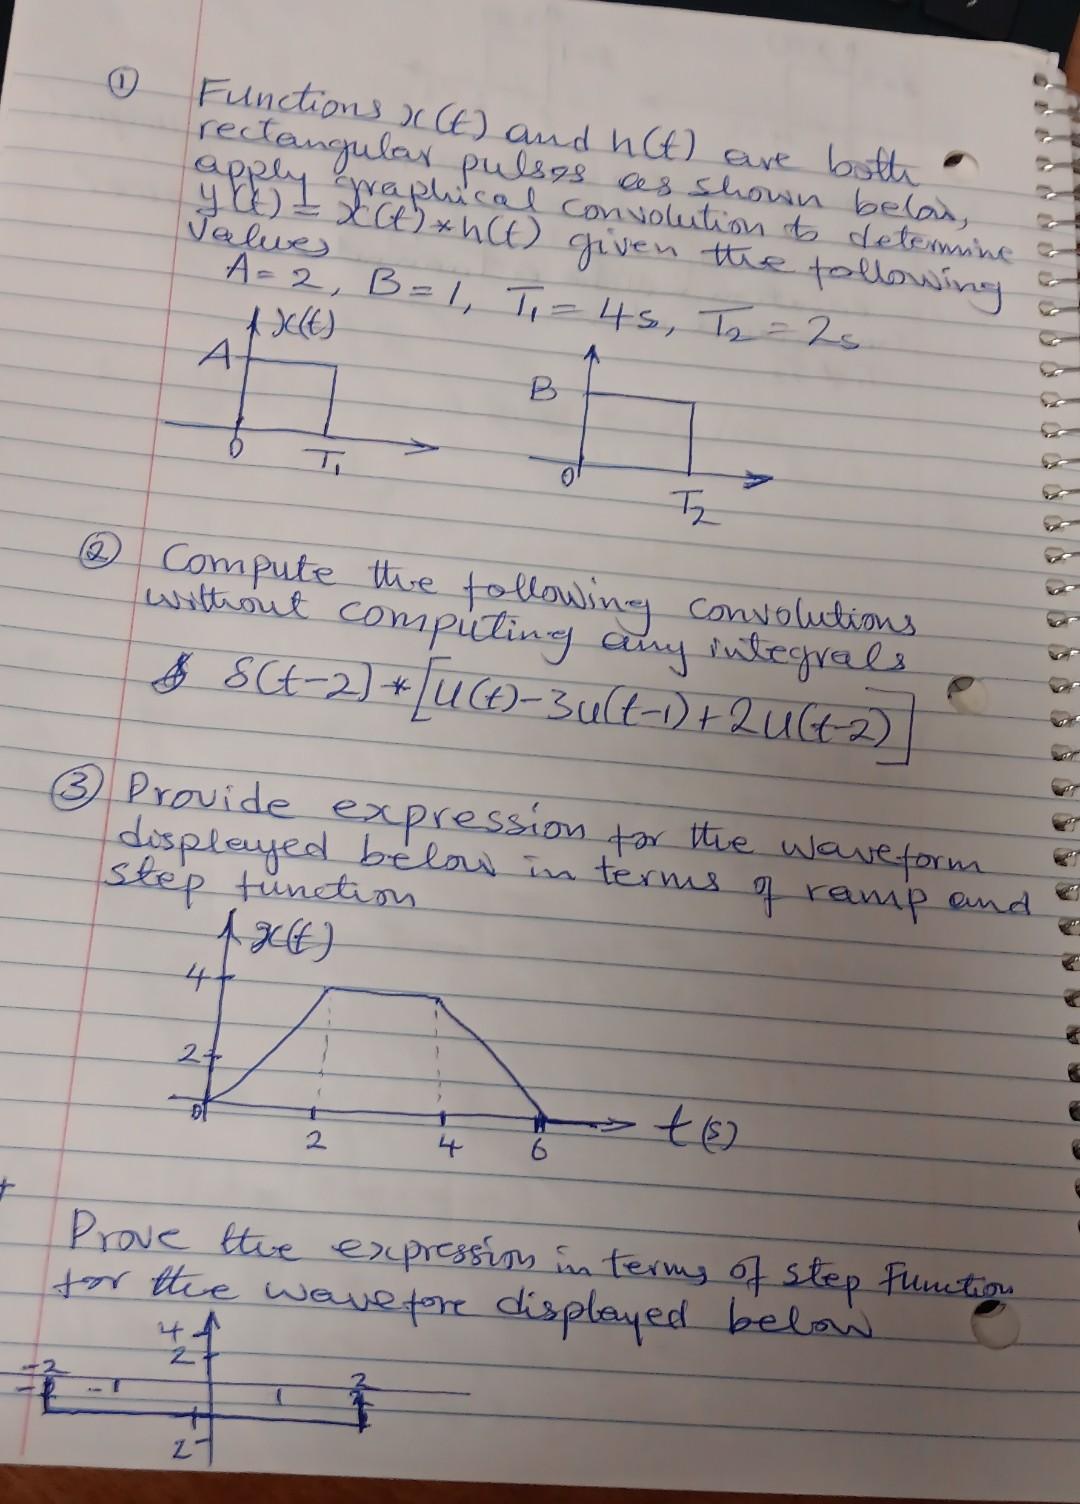 ① Functions x(t) and h(t) are both
rectangular pulses as shown below,
apply graphical convolution to determine
y(t) = x(t) * h(t) given the following
values
A = 2, B = 1, T₁ = 4s, T₂ = 2s
x(t)
A
0
T₁
B
0
T₂
② Compute the following convolutions
without computing any integrals
δ(t-2) * [u(t) - 3u(t-1) + 2u(t-2)]
③ Provide expression for the waveform
displayed below in terms of ramp and
step function
x(t)
4
2
0
2
4
6
t(s)
Prove the expression in terms of step Function
for the wavefore displayed below
4
2
-2
-1
1
2
2